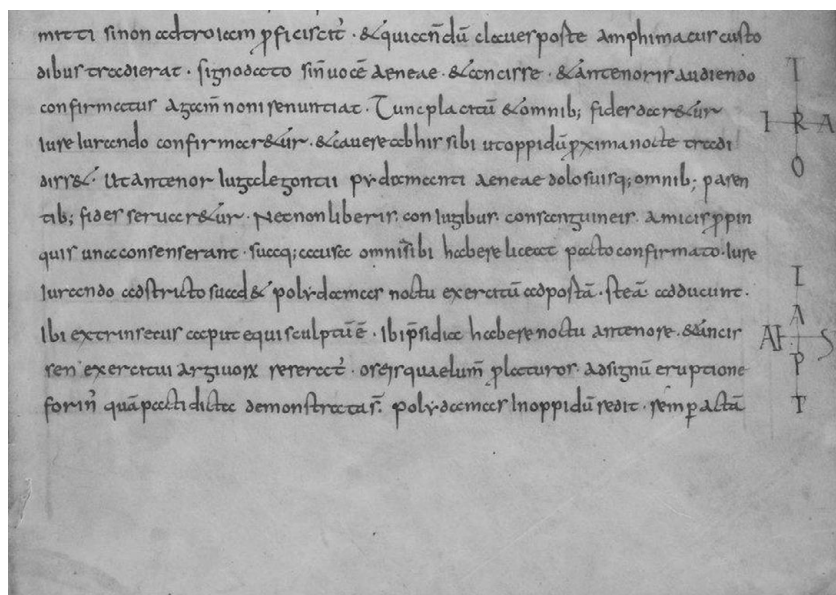 mitti sinon ad troiam ꝓficiscit᷒ · & qui cẽndũ claues portæ amphimacus custo
dibus tradierat · signo dato sin̄ uocẽ aeneae · & ancisse · & antenoris audiendo
confirmatus agam̄ noni renuntiat · Tunc placitũ & omnib; fides dar&ur
Iure Iurando confirmar&ur · & auere ab his sibi ut oppidũ ꝓxima nocte tradi
diss& · Ut antenor Iugalegontii polydamanti aeneae dolo suisq; omnib; paren
tib; fides seruar&ur · Necnon liberis · coniugibus · consanguineis · amicis ꝓpin
quis una consenserant · suaq; causa omni sibi habere liceat pacto confirmato · Iure
Iurando adstricto suad& polydamas noctu exercitũ ad portã · steã adducunt ·
Ibi extrinsecus caput equi sculptũ ẽ · Ibi p̄sidia habere noctu antenore · & ancis
sen exercitui argiuorꝝ reserat᷒ · oseisquae lum̄ ꝓlaturos · ad signũ eruptione
forin̄ quã pacti dicta demonstrata s̄ · polydamas In oppidũ redit · rem ꝑactã
T
I R A
O
I
A
AF S
P
T